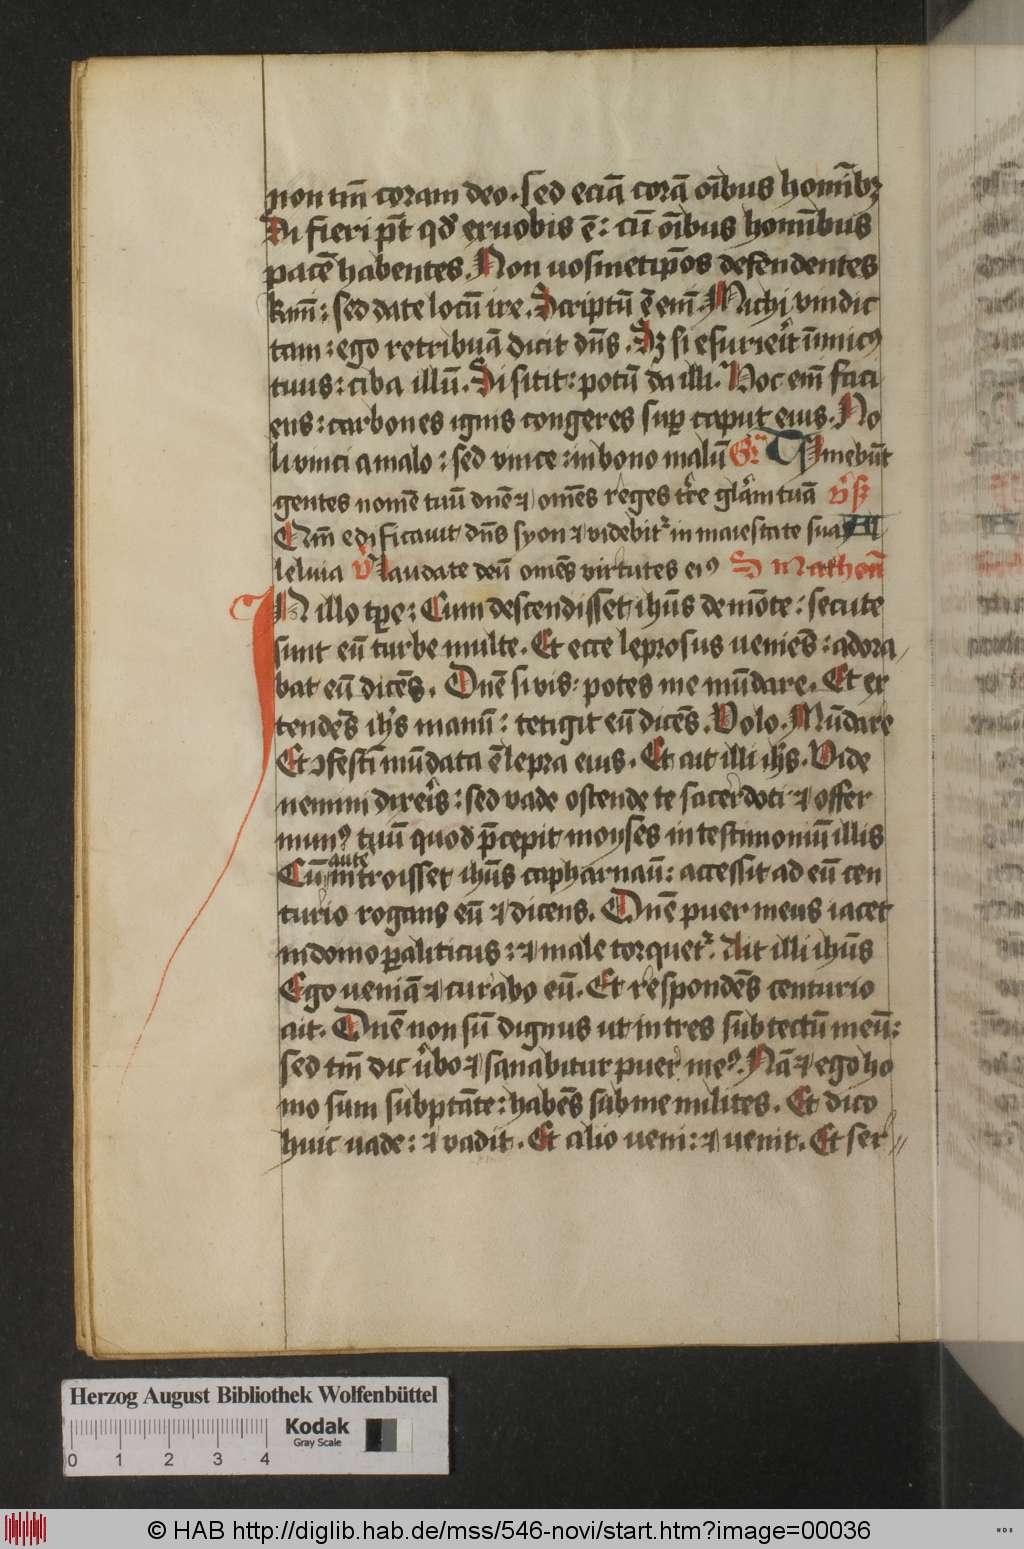 non tm̄ coram deo. sed eciā corā oībus homībꝫ
Si fieri pt̄ qd̓ ex uobis ē: cū oībus homībus
pacē habentes. Non uosmetip̄os defendentes
kmī: sed date locū ire. Scriptū ē enī. Michi vindic
tam: ego retribuā dicit dn̄s. Sꝫ si esurierit īimicꝰ
tuus: ciba illū. Si sitit: potū da illi. Hoc enī faci
ens: carbones ignis congeres suꝑ caput eius. No
li vinci a malo: sed vince in bono malū Gr̄ Timebūt
gentes nomē tuū dnē ⁊ omēs reges tr̄e glām tuā v̓s
Qm̄ edificauit dn̄s syon ⁊ videbit᷑ in maiestate sua All
leluia v̓ laudate deū omēs virtutes eiꝰ S Matheū
IN illo tꝑe: Cum descendisset ihūs de mōte: secute
sunt eū turbe multe. Et ecce leprosus veniēs: adora
bat eū dicēs. Dnē si vis: potes me mūdare. Et ex
tendēs ihs̄ manū: tetigit eū dicēs. Volo. Mūdare
Et ↄfestī mūdata ē lepra eius. Et ait illi ihs̄. Vide
nemini dixeris: sed vade ostende te sacerdoti ⁊ offer
munꝰ tuū quod p̄cepit moyses in testimoniū illis
Cū aūte introisset ihūs capharnaū: accessit ad eū cen
turio rogans eū ⁊ dicens. Dnē puer meus iacet
in domo ꝑaliticus: ⁊ male torquet᷑. Ait illi ihūs
Ego veniā ⁊ curabo eū. Et respondēs centurio
ait. Dnē non sū dignus ut intres sub tectū meū:
sed tm̄ dic v̓bo ⁊ sanabitur puer meꝰ. Nā ⁊ ego ho
mo sum sub ptāte: habēs sub me milites. Et dico
huic vade: ⁊ vadit. Et alio veni: ⁊ venit. Et ser
Herzog August Bibliothek Wolfenbüttel
0 1 2 3 4
Kodak
Gray Scale
© HAB http://diglib.hab.de/mss/546-novi/start.htm?image=00036